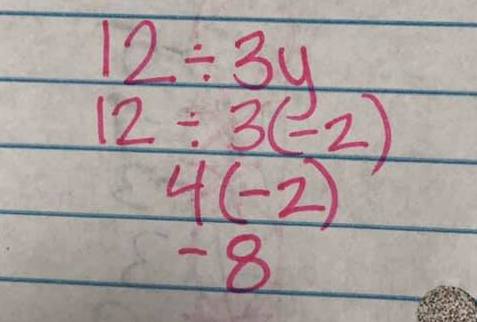 12 ÷ 3y
12 ÷ 3(-2)
4(-2)
-8